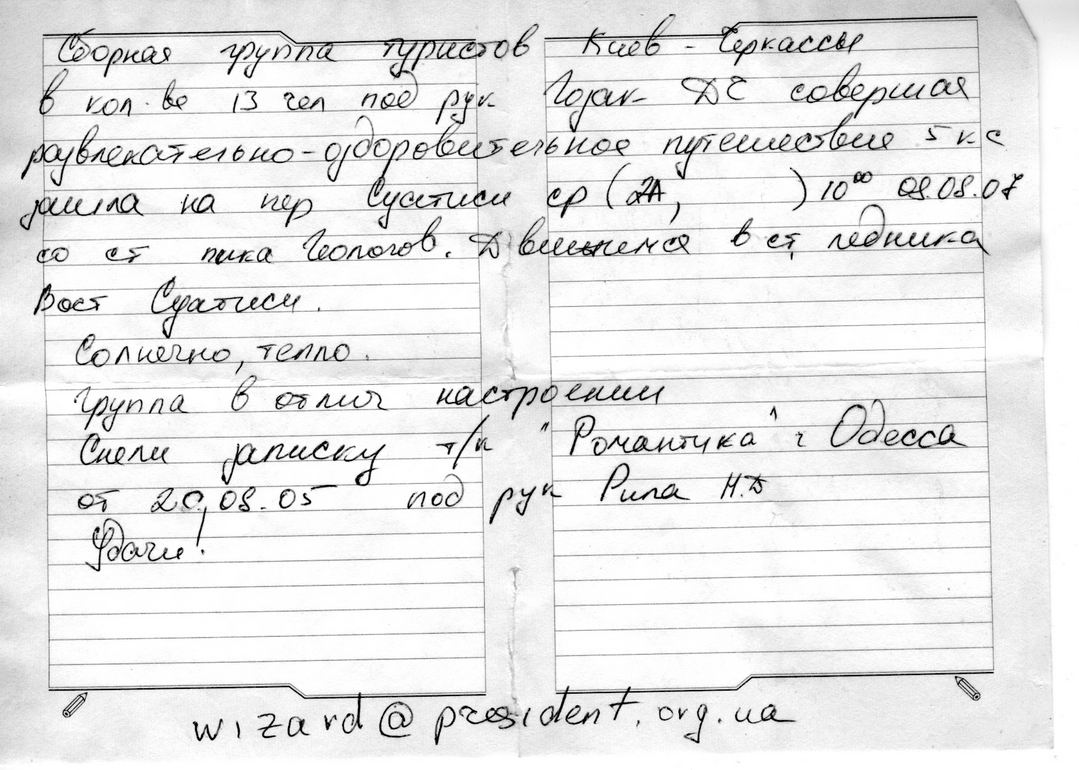 Сборная группа туристов Киев - Черкассы
в кол-ве 13 чел под рук Гојак ДЕ совершая
развлекательно-оздоровительное путешествие 5 к с
зашла на пер Суатиси ср (2А, ) 10⁰⁰ 08.08.07
со ст пика Геологов. Движемся в ст ледника
Вост Суатиси.
Солнечно, тепло.
Группа в отлич настроении
Сняли записку т/к "Романтика" г Одесса
от 20.08.05 под рук Рипа Н.Д
Удачи!
wizard@president.org.ua